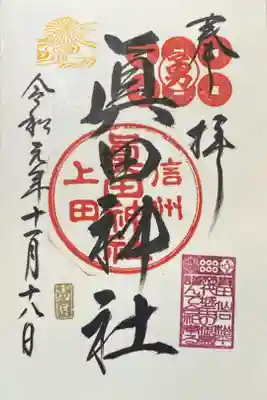 奉拝
勇
眞田神社
信州
上田
眞田神社
令和元年十一月十八日